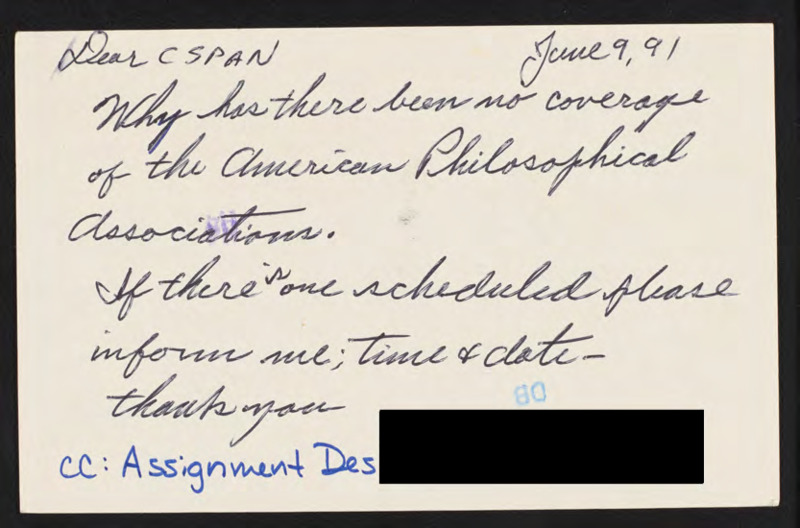 Dear CSPAN June 9, 91
Why has there been no coverage
of the American Philosophical
Associations.
If there's one scheduled please
inform me; time & date -
thank you
cc: Assignment Des